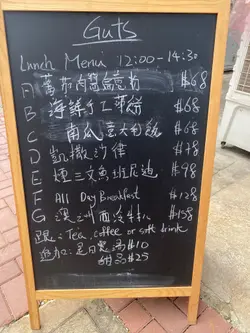 Guts
Lunch Menu 12:00-14:30
A 蕃茄肉醬 意粉 $68
B 海鮮手工薄餅 $68
C 南瓜意大利飯 $68
D 凱撒沙律 $78
E 煙三文魚班尼迪 $98
F All Day Breakfast $128
G 澳洲西冷牛扒 $158
跟: Tea, coffee or soft drink
追加: 是日餐湯 $10
甜品 $25